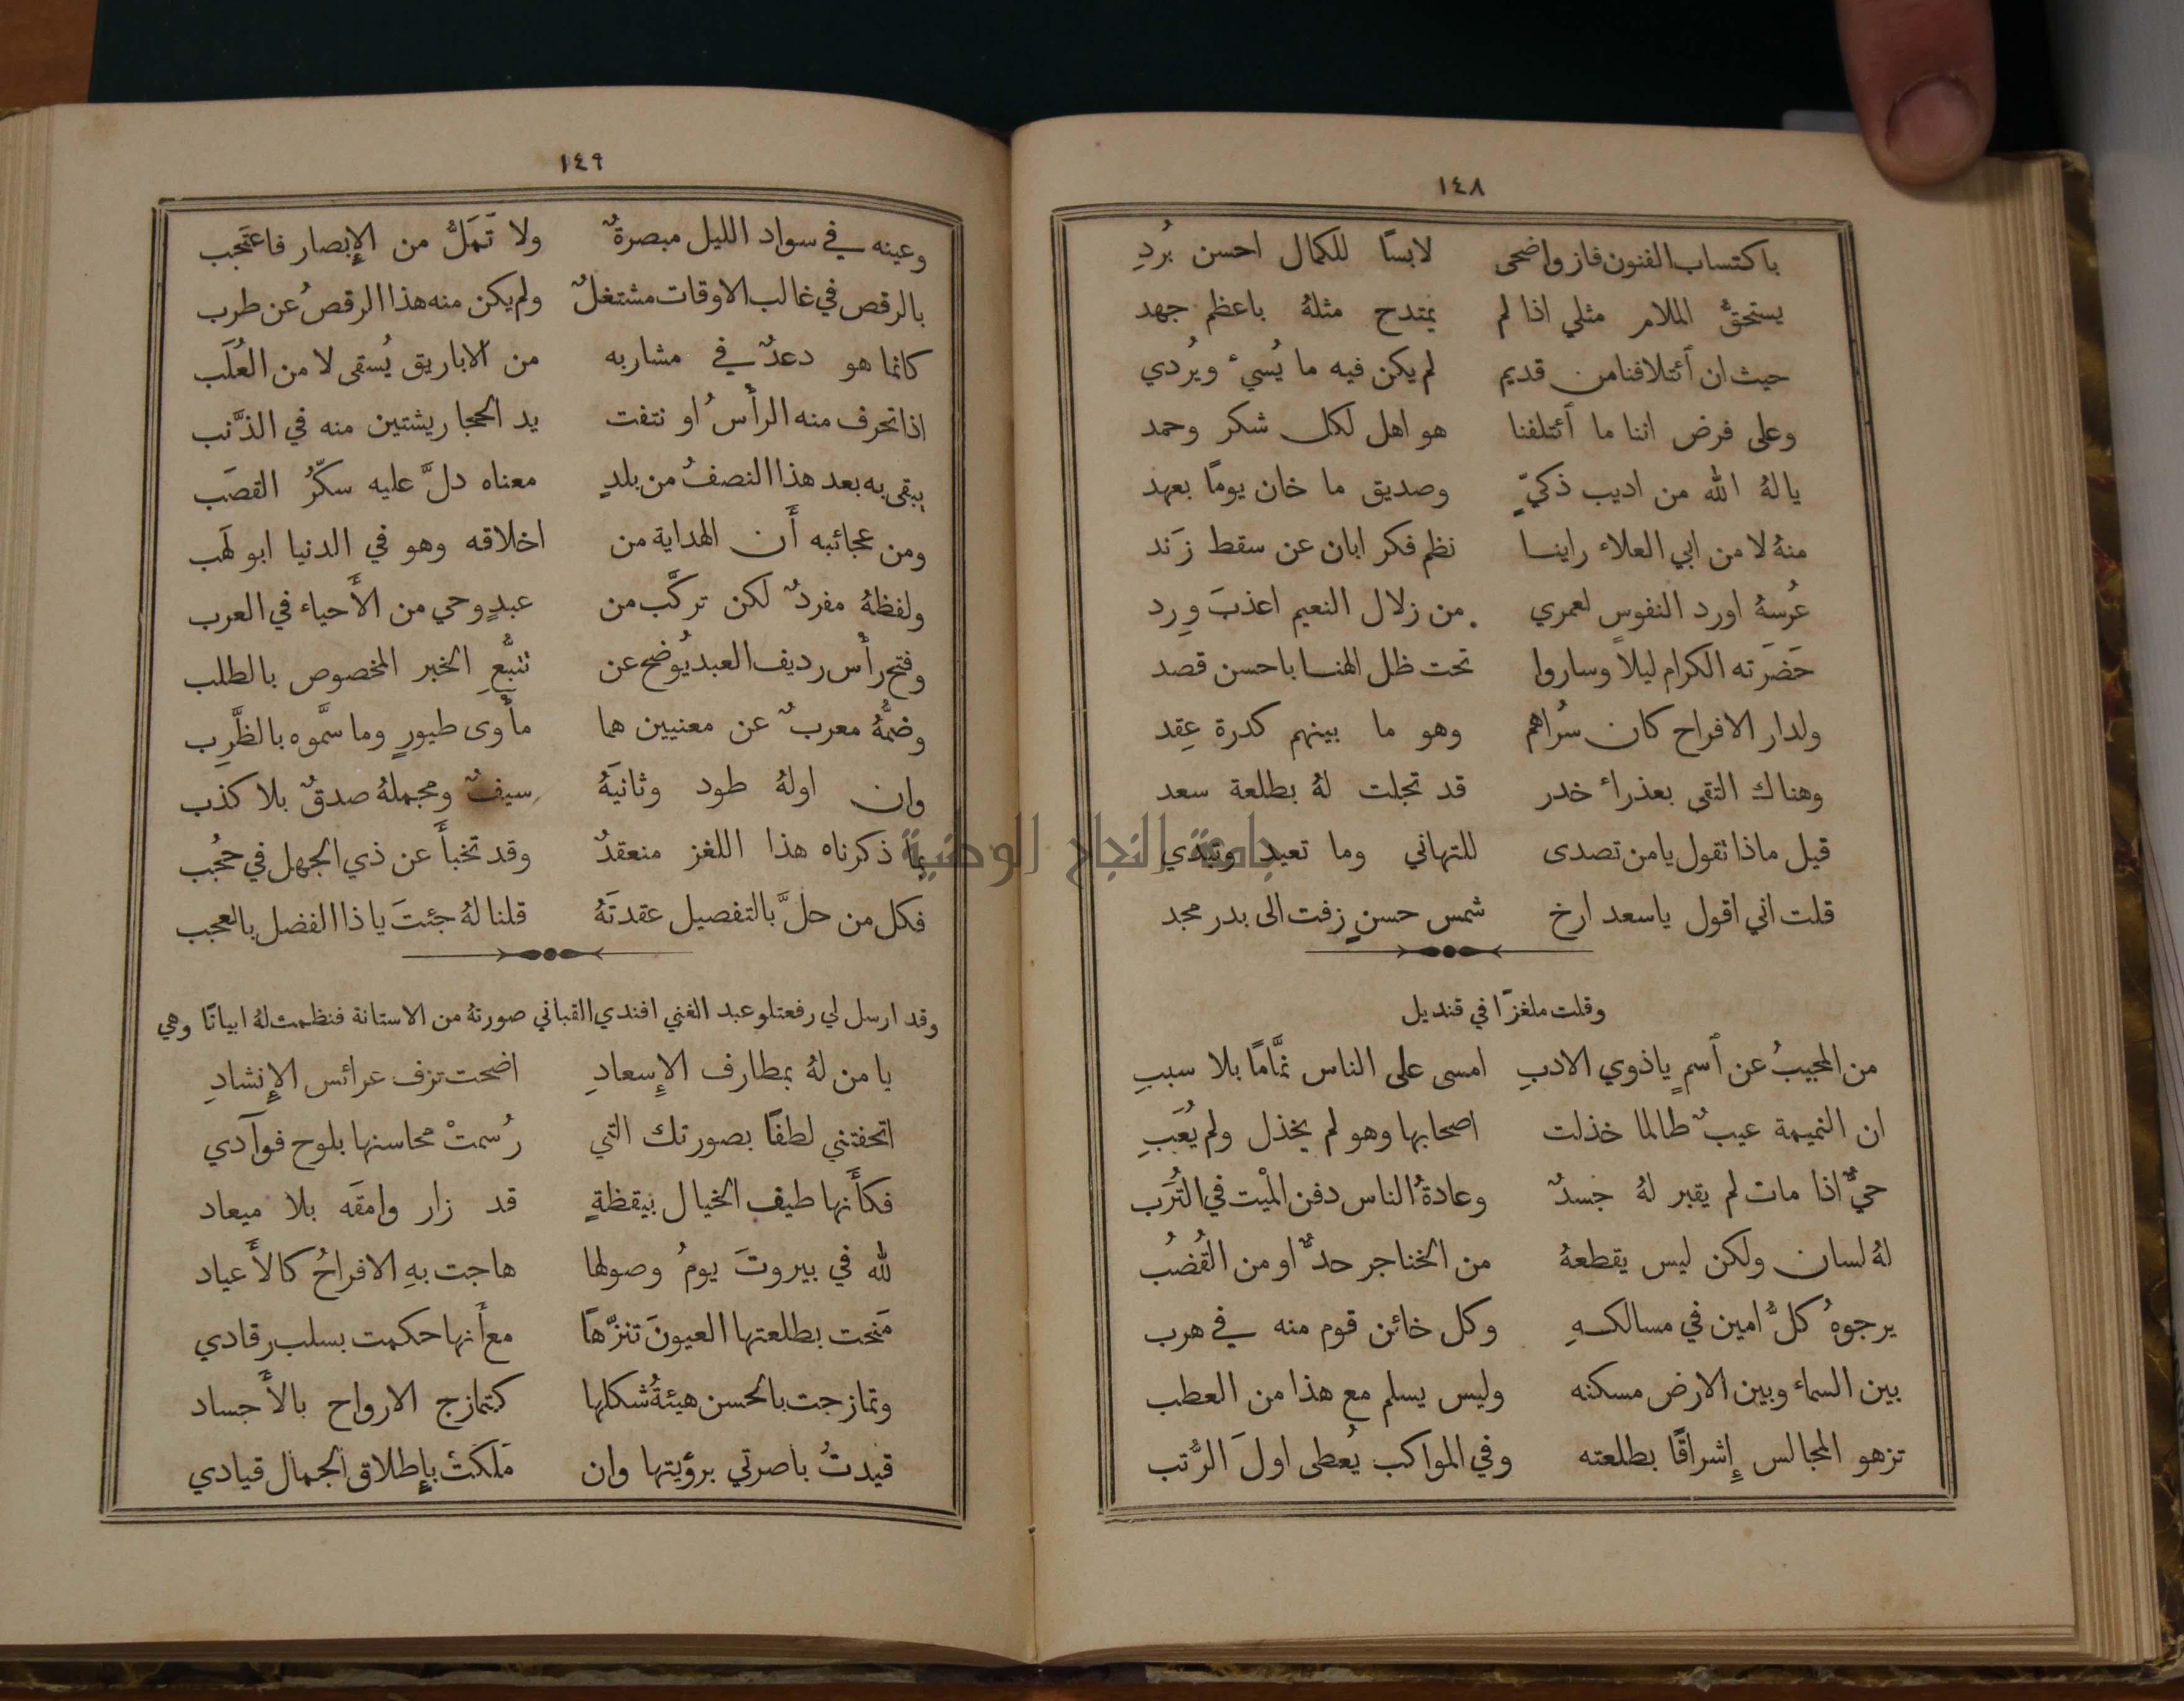 ١٤٨
باكتساب الفنون فاز واضحى لابسًا للكمال احسن بُردِ
يستحقُّ الملام مثلي اذا لم يمتدح مثلهُ باعظم جهد
حيث ان أئتلافنا من قديم لم يكن فيه ما يُسيءُ ويُردي
وعلى فرض اننا ما أئتلفنا هو اهل لكل شكر وحمد
يا لهُ الله من اديب ذكيٍّ وصديق ما خان يومًا بعهد
منهُ لا من ابي العلاء راينا نظم فكر ابان عن سقط زَند
عُرسهُ اورد النفوس لعمري من زلال النعيم اعذبَ وِرد
حَضَرته الكرام ليلاً وساروا تحت ظل الهنا باحسن قصد
ولدار الافراح كان سُراهم وهو ما بينهم كدرة عِقد
وهناك التقى بعذراء خدر قد تجلت لهُ بطلعة سعد
قيل ماذا تقول يا من تصدى للتهاني وما تعيد وتبدي
قلت اني اقول يا سعد ارخ شمس حسنٍ زفت الى بدر مجد
وقلت ملغزًا في قنديل
من المجيبُ عن أسمٍ يا ذوي الادبِ امسى على الناس نمَّامًا بلا سببِ
ان النميمة عيبٌ طالما خذلت اصحابها وهو لم يخذل ولم يُعَبِ
حيٌّ اذا مات لم يقبر لهُ جسدٌ وعادةُ الناس دفن الميْت في التُرَب
لهُ لسان ولكن ليس يقطعهُ من الخناجر حدٌّ او من القُضبُ
يرجوهُ كلُّ امين في مسالكهِ وكل خائن قوم منه في هرب
بين السماء وبين الارض مسكنه وليس يسلم مع هذا من العطب
تزهو المجالس إشراقًا بطلعته وفي المواكب يُعطى اولَ الرُّتب
١٤٩
وعينه في سواد الليل مبصرةٌ ولا تَمَلُّ من الإبصار فاعتَجب
بالرقص في غالب الاوقات مشتغلٌ ولم يكن منه هذا الرقصُ عن طرب
كانما هو دعدٌ في مشاربه من الاباريق يُسقى لا من العُلَب
اذا تحرف منه الرأسُ او نتفت يد الحجا ريشتين منه في الذَّنب
يبقى به بعد هذا النصفُ من بلدٍ معناه دلَّ عليه سكّرُ القصَب
ومن عجائبه أَن الهداية من اخلاقه وهو في الدنيا ابو لَهَب
ولفظهُ مفردٌ لكن تركَّب من عبدٍ وحي من الأَحياء في العرب
وفتح رأْس رديف العبد يُوضح عن تتبُّعِ الخبر المخصوص بالطلب
وضمُّهُ معربٌ عن معنيين هما مأْوى طيورٍ وما سمَّوه بالظَّرِب
وان اولهُ طود وثانيَهُ سيفٌ ومجملهُ صدقٌ بلا كذَب
بما ذكرناه هذا اللغز منعقدٌ وقد تخبأَ عن ذي الجهل في حُجُب
فكل من حلَّ بالتفصيل عقدتَهُ قلنا لهُ جئتَ يا ذا الفضل بالعجب
وقد ارسل لي رفعتلو عبد الغني افندي القباني صورتهُ من الاستانة فنظمت لهُ ابياتًا وهي
يا من لهُ بمطارف الإِسعادِ اضحت تزف عرائس الإِنشادِ
اتحفتني لطفًا بصورتك التي رُسمتْ محاسنها بلوح فوآدي
فكأَنها طيف الخيال بيقظةٍ قد زار وامقَه بلا ميعاد
لله في بيروتَ يومُ وصولها هاجت بهِ الافراحُ كالأَعياد
مَنحت بطلعتها العيونَ تنزّهًا مع أَنها حكمت بسلب رقادي
وتمازجت بالحسن هيئةُ شكلها كتمازج الارواح بالأَجساد
قيدتُ باصرتي برؤيتها وان مَلكتْ بإِطلاق الجمال قيادي
جامعة النجاح الوطنية